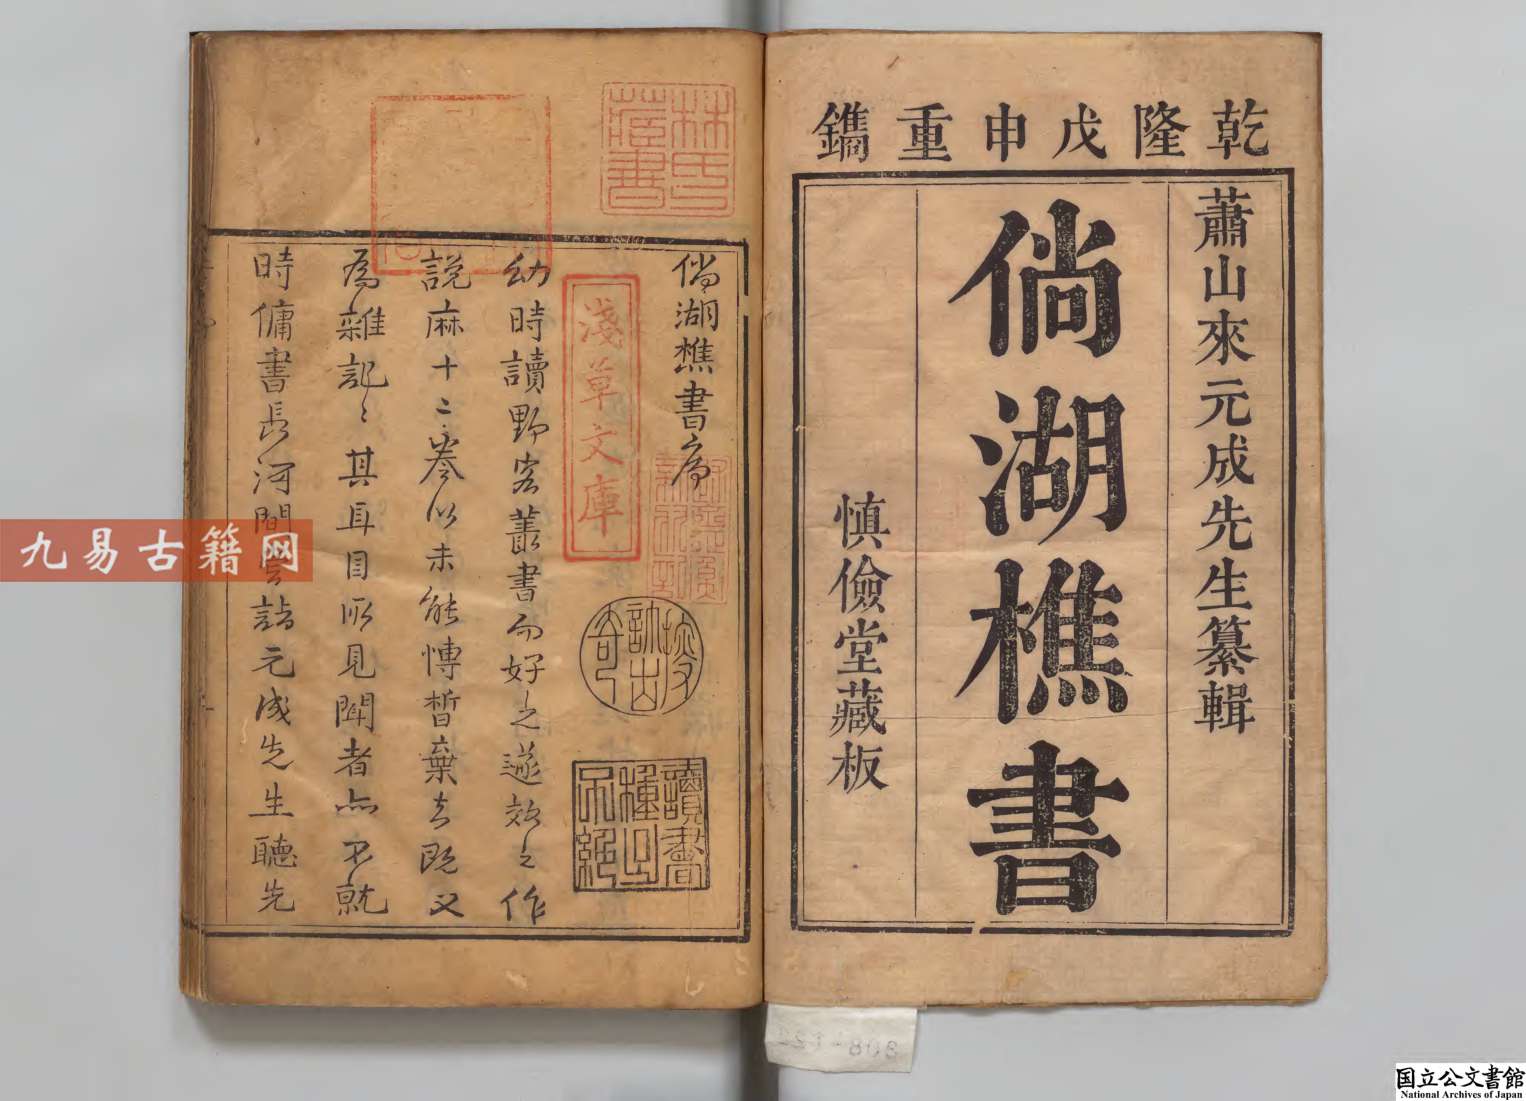 乾隆戊申重鐫
蕭山來元成先生纂輯
倘湖樵書
慎儉堂藏板
倘湖樵書序
幼時讀野客叢書而好之遂效之作
說麻十二卷以未能慱晢棄去既又
為雜記〻其耳目所見聞者亦不就
時傭書長河間言詣元成先生聽先
林氏藏書
淺草文庫
讀書種子不絕
九易古籍网
国立公文書館
National Archives of Japan